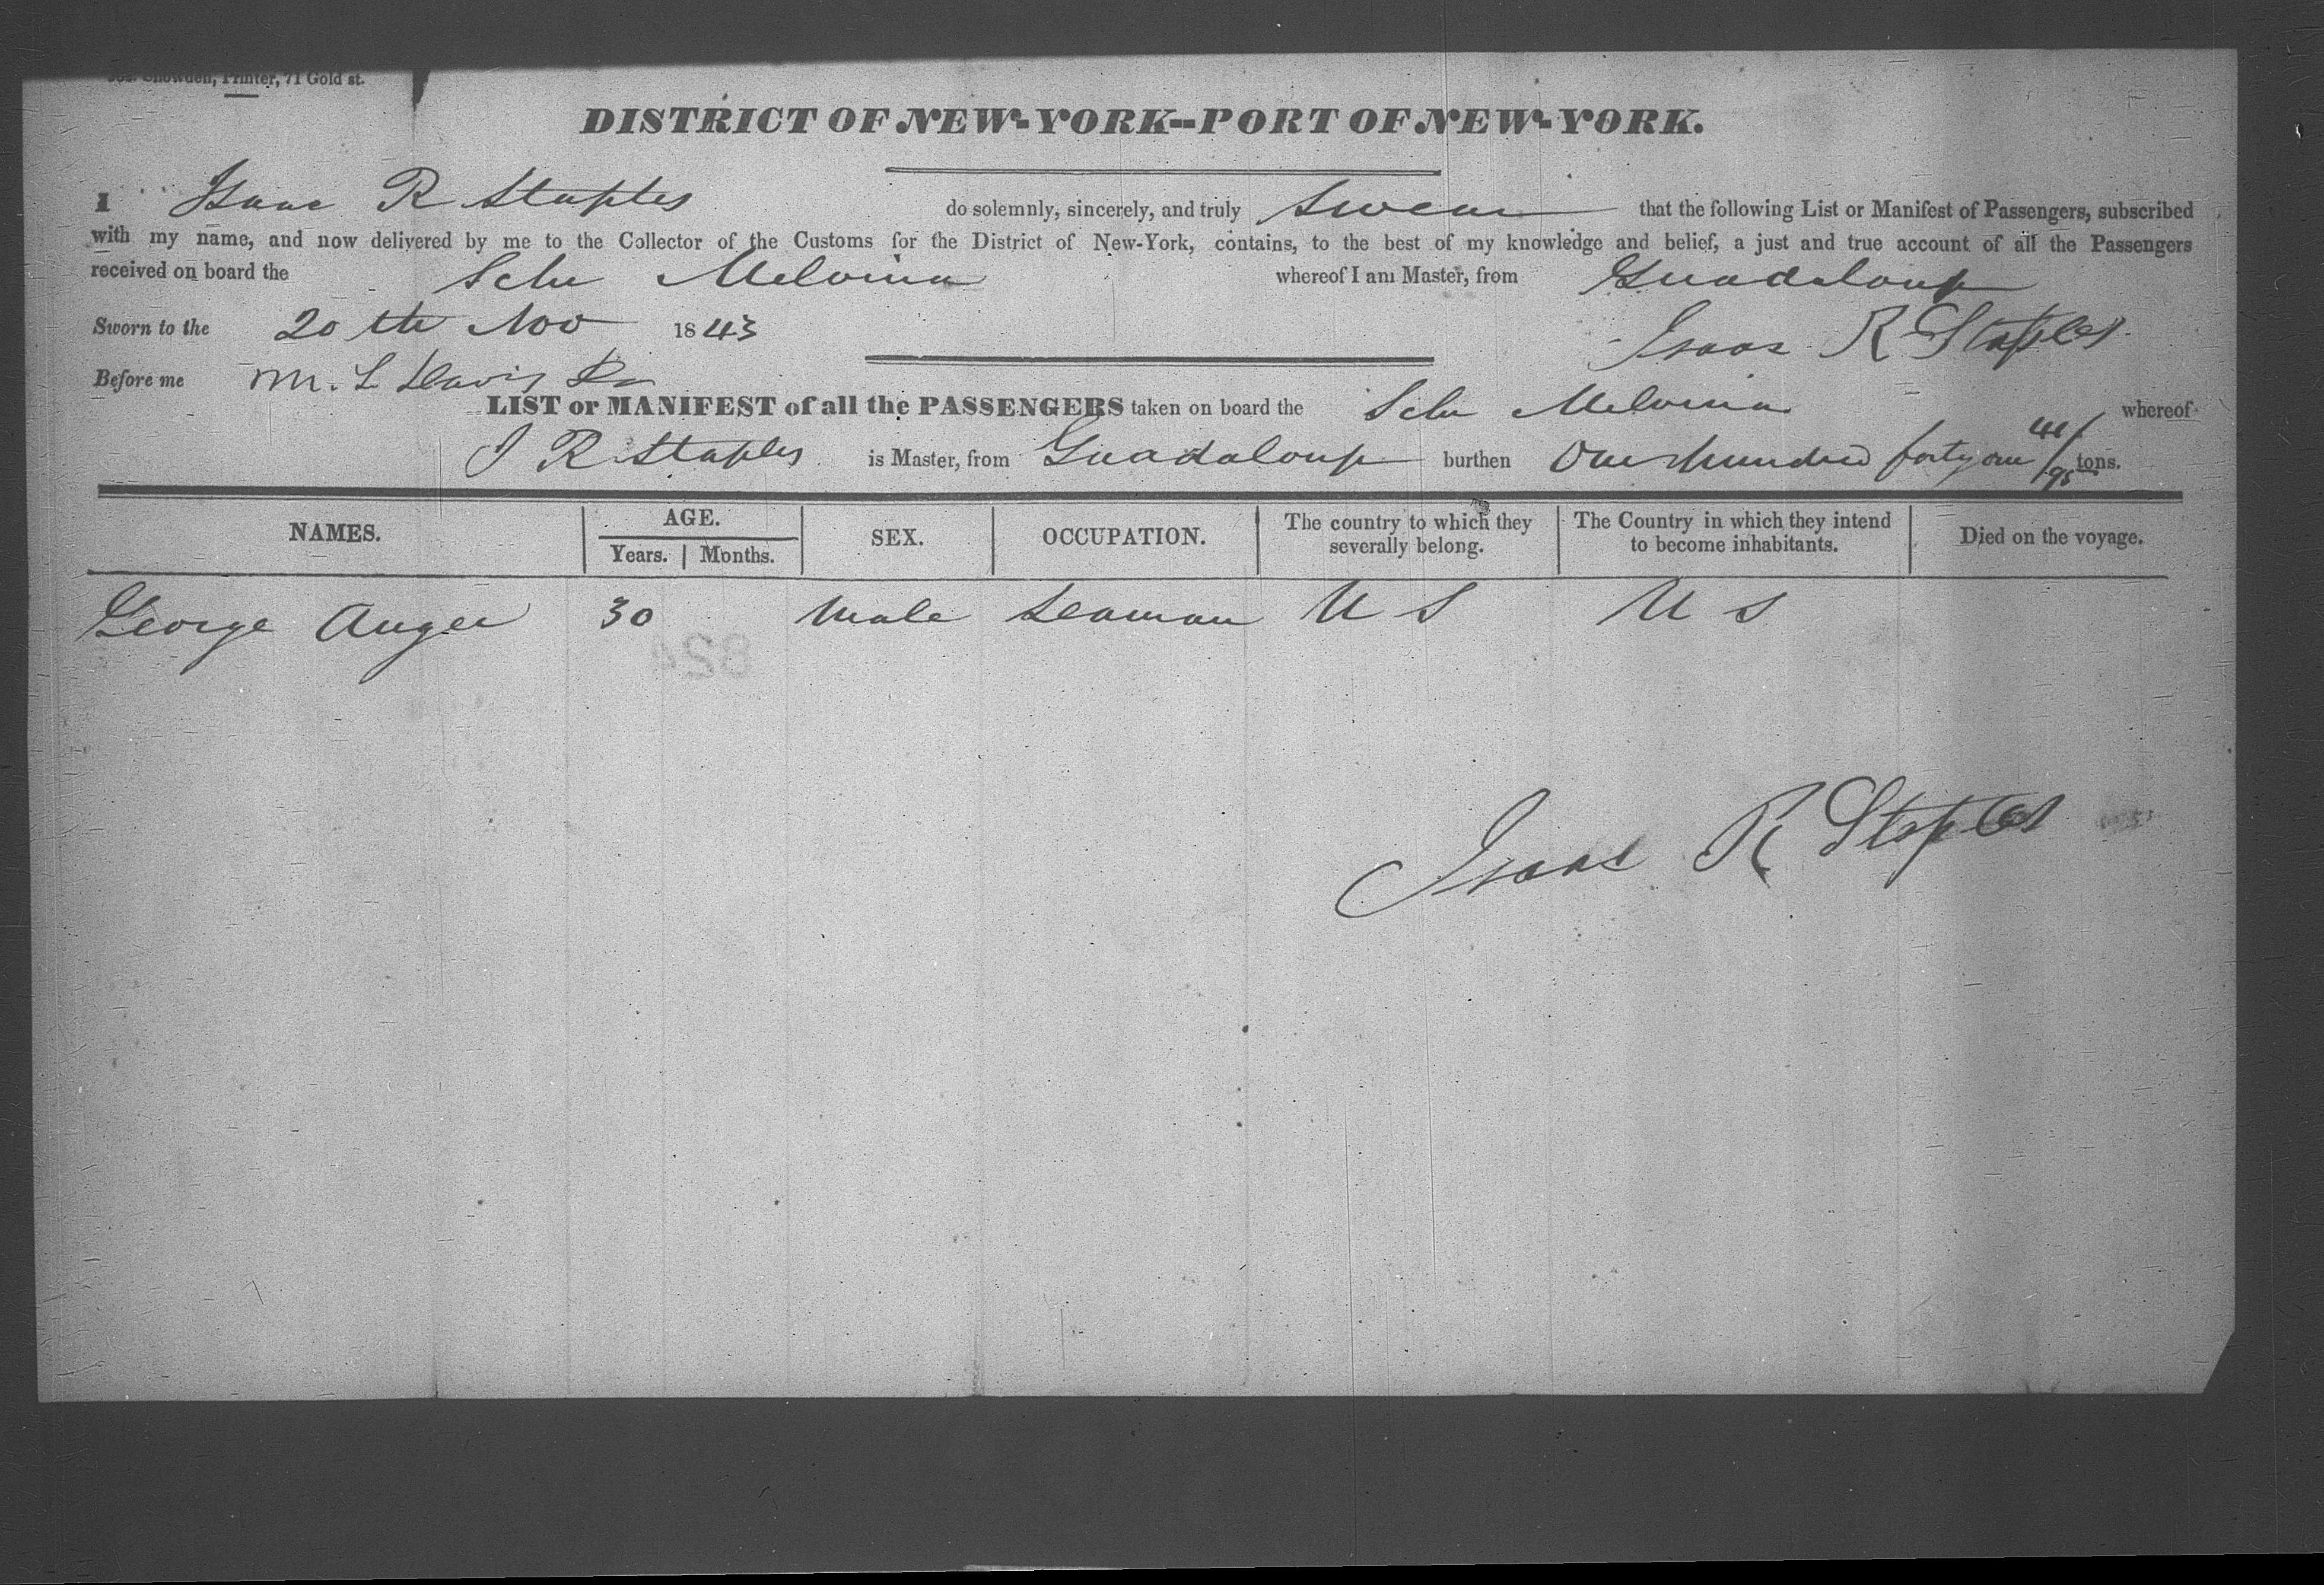 Jas. Snowden, Printer, 71 Gold st.
DISTRICT OF NEW-YORK--PORT OF NEW-YORK.
I Isaac R Staples do solemnly, sincerely, and truly Swear that the following List or Manifest of Passengers, subscribed
with my name, and now delivered by me to the Collector of the Customs for the District of New-York, contains, to the best of my knowledge and belief, a just and true account of all the Passengers
received on board the Schr Melvina whereof I am Master, from Guadaloup
Sworn to the 20th Nov 1843 Isaac R Staples
Before me M. L Davis
LIST or MANIFEST of all the PASSENGERS taken on board the Schr Melvina whereof
I R Staples is Master, from Guadaloup burthen One hundred forty one 41/95 tons.
NAMES. AGE. SEX. OCCUPATION. The country to which they severally belong. The Country in which they intend to become inhabitants. Died on the voyage.
Years. Months.
George Auger 30 Male Seaman U S U S
824
Isaac R Staples